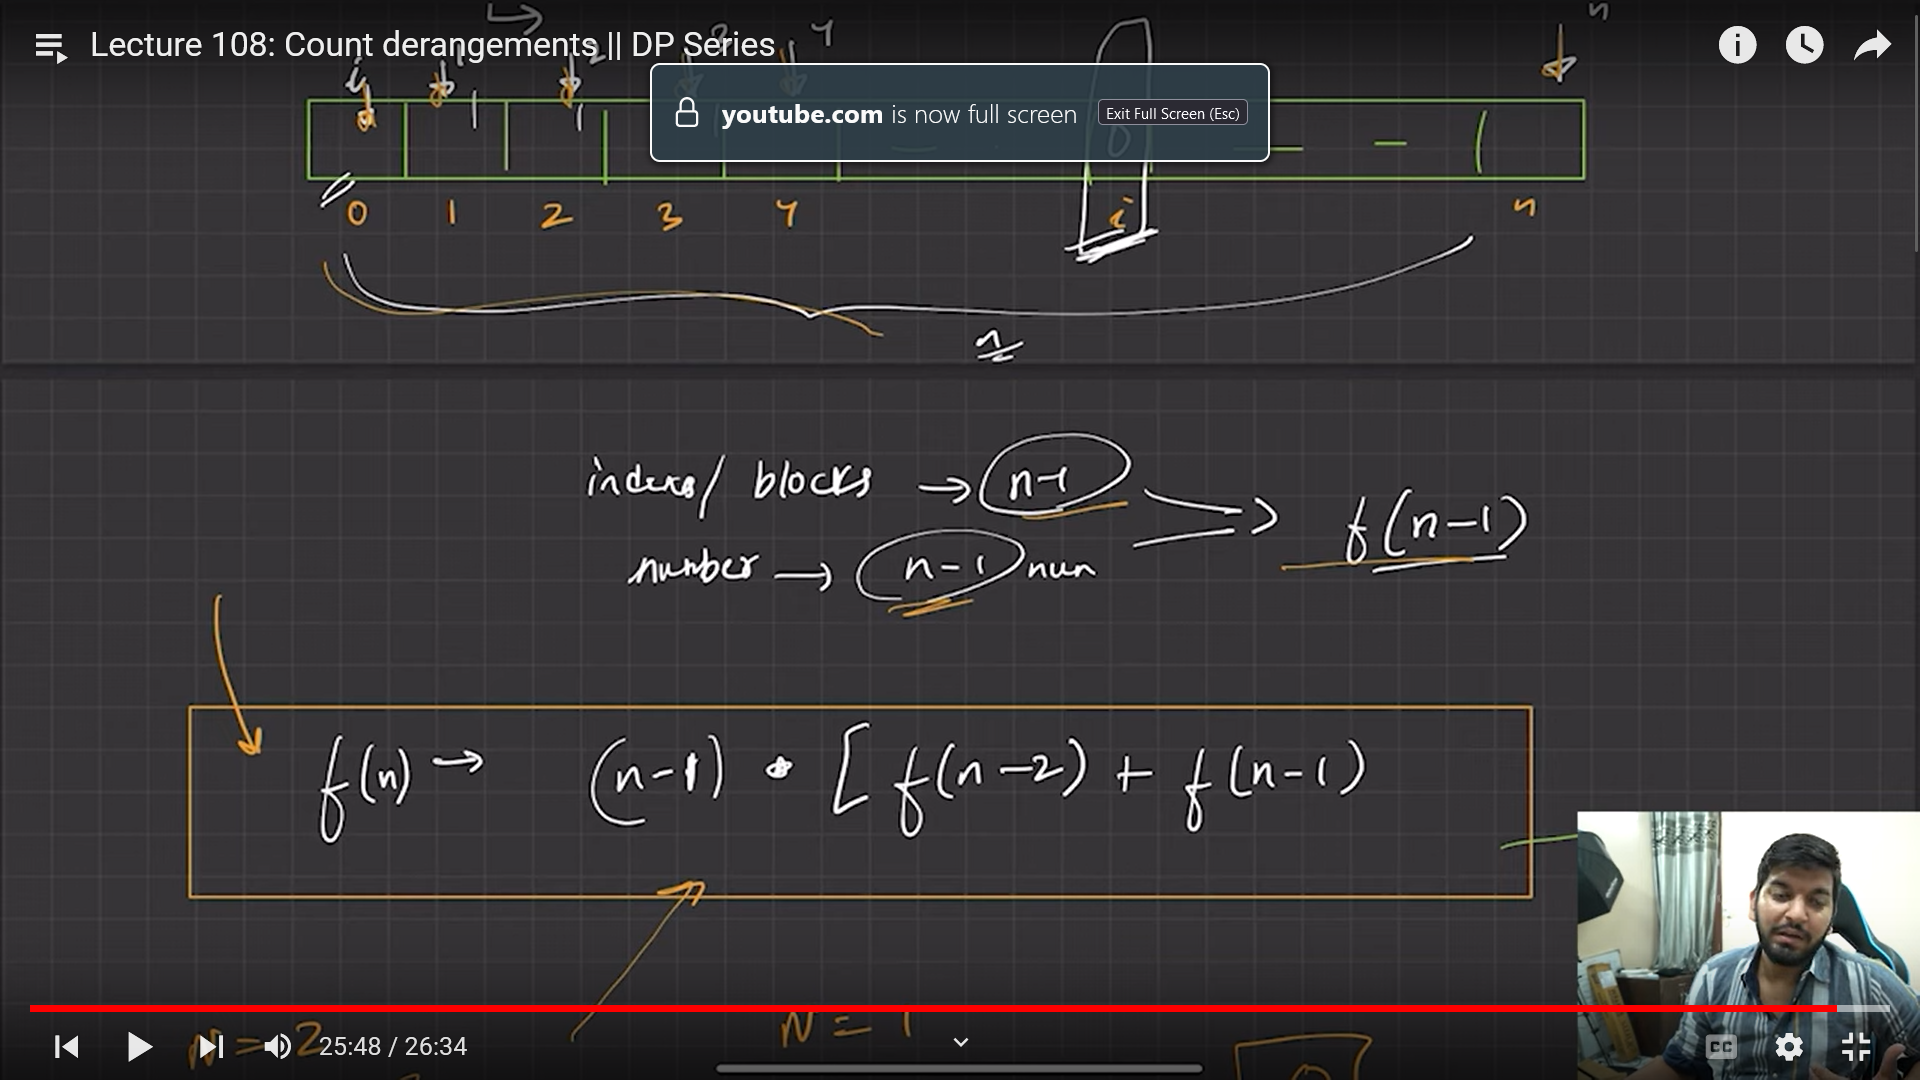 Lecture 108: Count derangements || DP Series
youtube.com is now full screen Exit Full Screen (Esc)
n
0 1 2 3 4 i n
n
/ blocks → n-1
f(n-1)
number → n-1 num
f(n) → (n-1) * [ f(n-2) + f(n-1)
N = 2 N = 1
25:48 / 26:34
CC